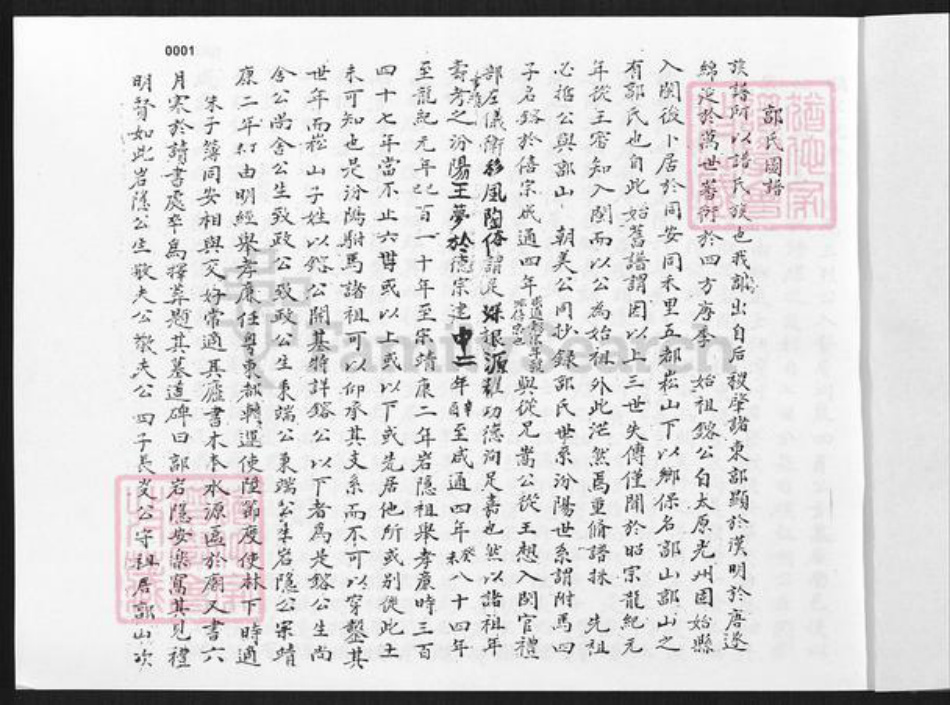 0001
郭氏國譜
族譜所以譜氏族也我郭出自后稷肇諸東郭顯於漢明於唐遂
綿延於萬世蕃衍於四方唐季 始祖鎔公自太原光州固始縣
入閩後卜居於同安同禾里五都崧山下以鄉保名郭山郭山之
有郭氏也自此始舊譜謂因以上三世失傳僅聞於昭宗龍紀元
年從王審知入閩而以公為始祖外此茫然焉重脩譜牒 先祖
必抵公與郭山 朝美公同抄錄郭氏世系汾陽世系謂附馬四
子名鎔於僖宗咸通四年 與從兄嵩公從王想入閩官禮
部左儀衛移風陶俗諸足深根源雖功德洵足嘉也然以諸祖年
壽考之汾陽王夢於德宗建中二年 至咸通四年癸未八十四年
至龍紀元年己酉一十年至宗靖康二年岩隱祖舉孝康時三百
四十七年當不止六世或以上或以下或先居他所或別從此土
未可知也是汾陽駙馬諸祖可以仰承其支系而不可以穿鑿其
世年而松山子姓以鎔公開基特詳鎔公以下者為是鎔公生尚
舍公尚舍公生致政公致政公生東端公東端公生岩隱公宋靖
康二年 由明經舉孝康任粵東都轉運使陞節度使林下時適
朱子簿同安相與交好常適其廬書木本水源匾於廟又書六
月寒於請書處卒為擇葬題其墓道碑曰郭岩隱安樂窩其見禮
明賢如此岩隱公生敬夫公敬夫公四子長炎公守祖居郭山次
FamilySearch